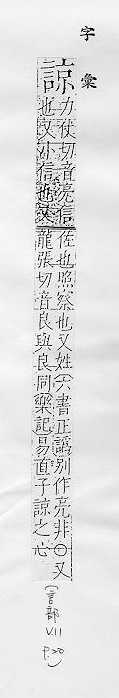 字彙
諒
力仗切音亮信
也又小信也又
佐也照察也又姓六書正譌別作亮非○又
龍張切音良與良同樂記易直子諒之心
(言部
V.11
P.20)